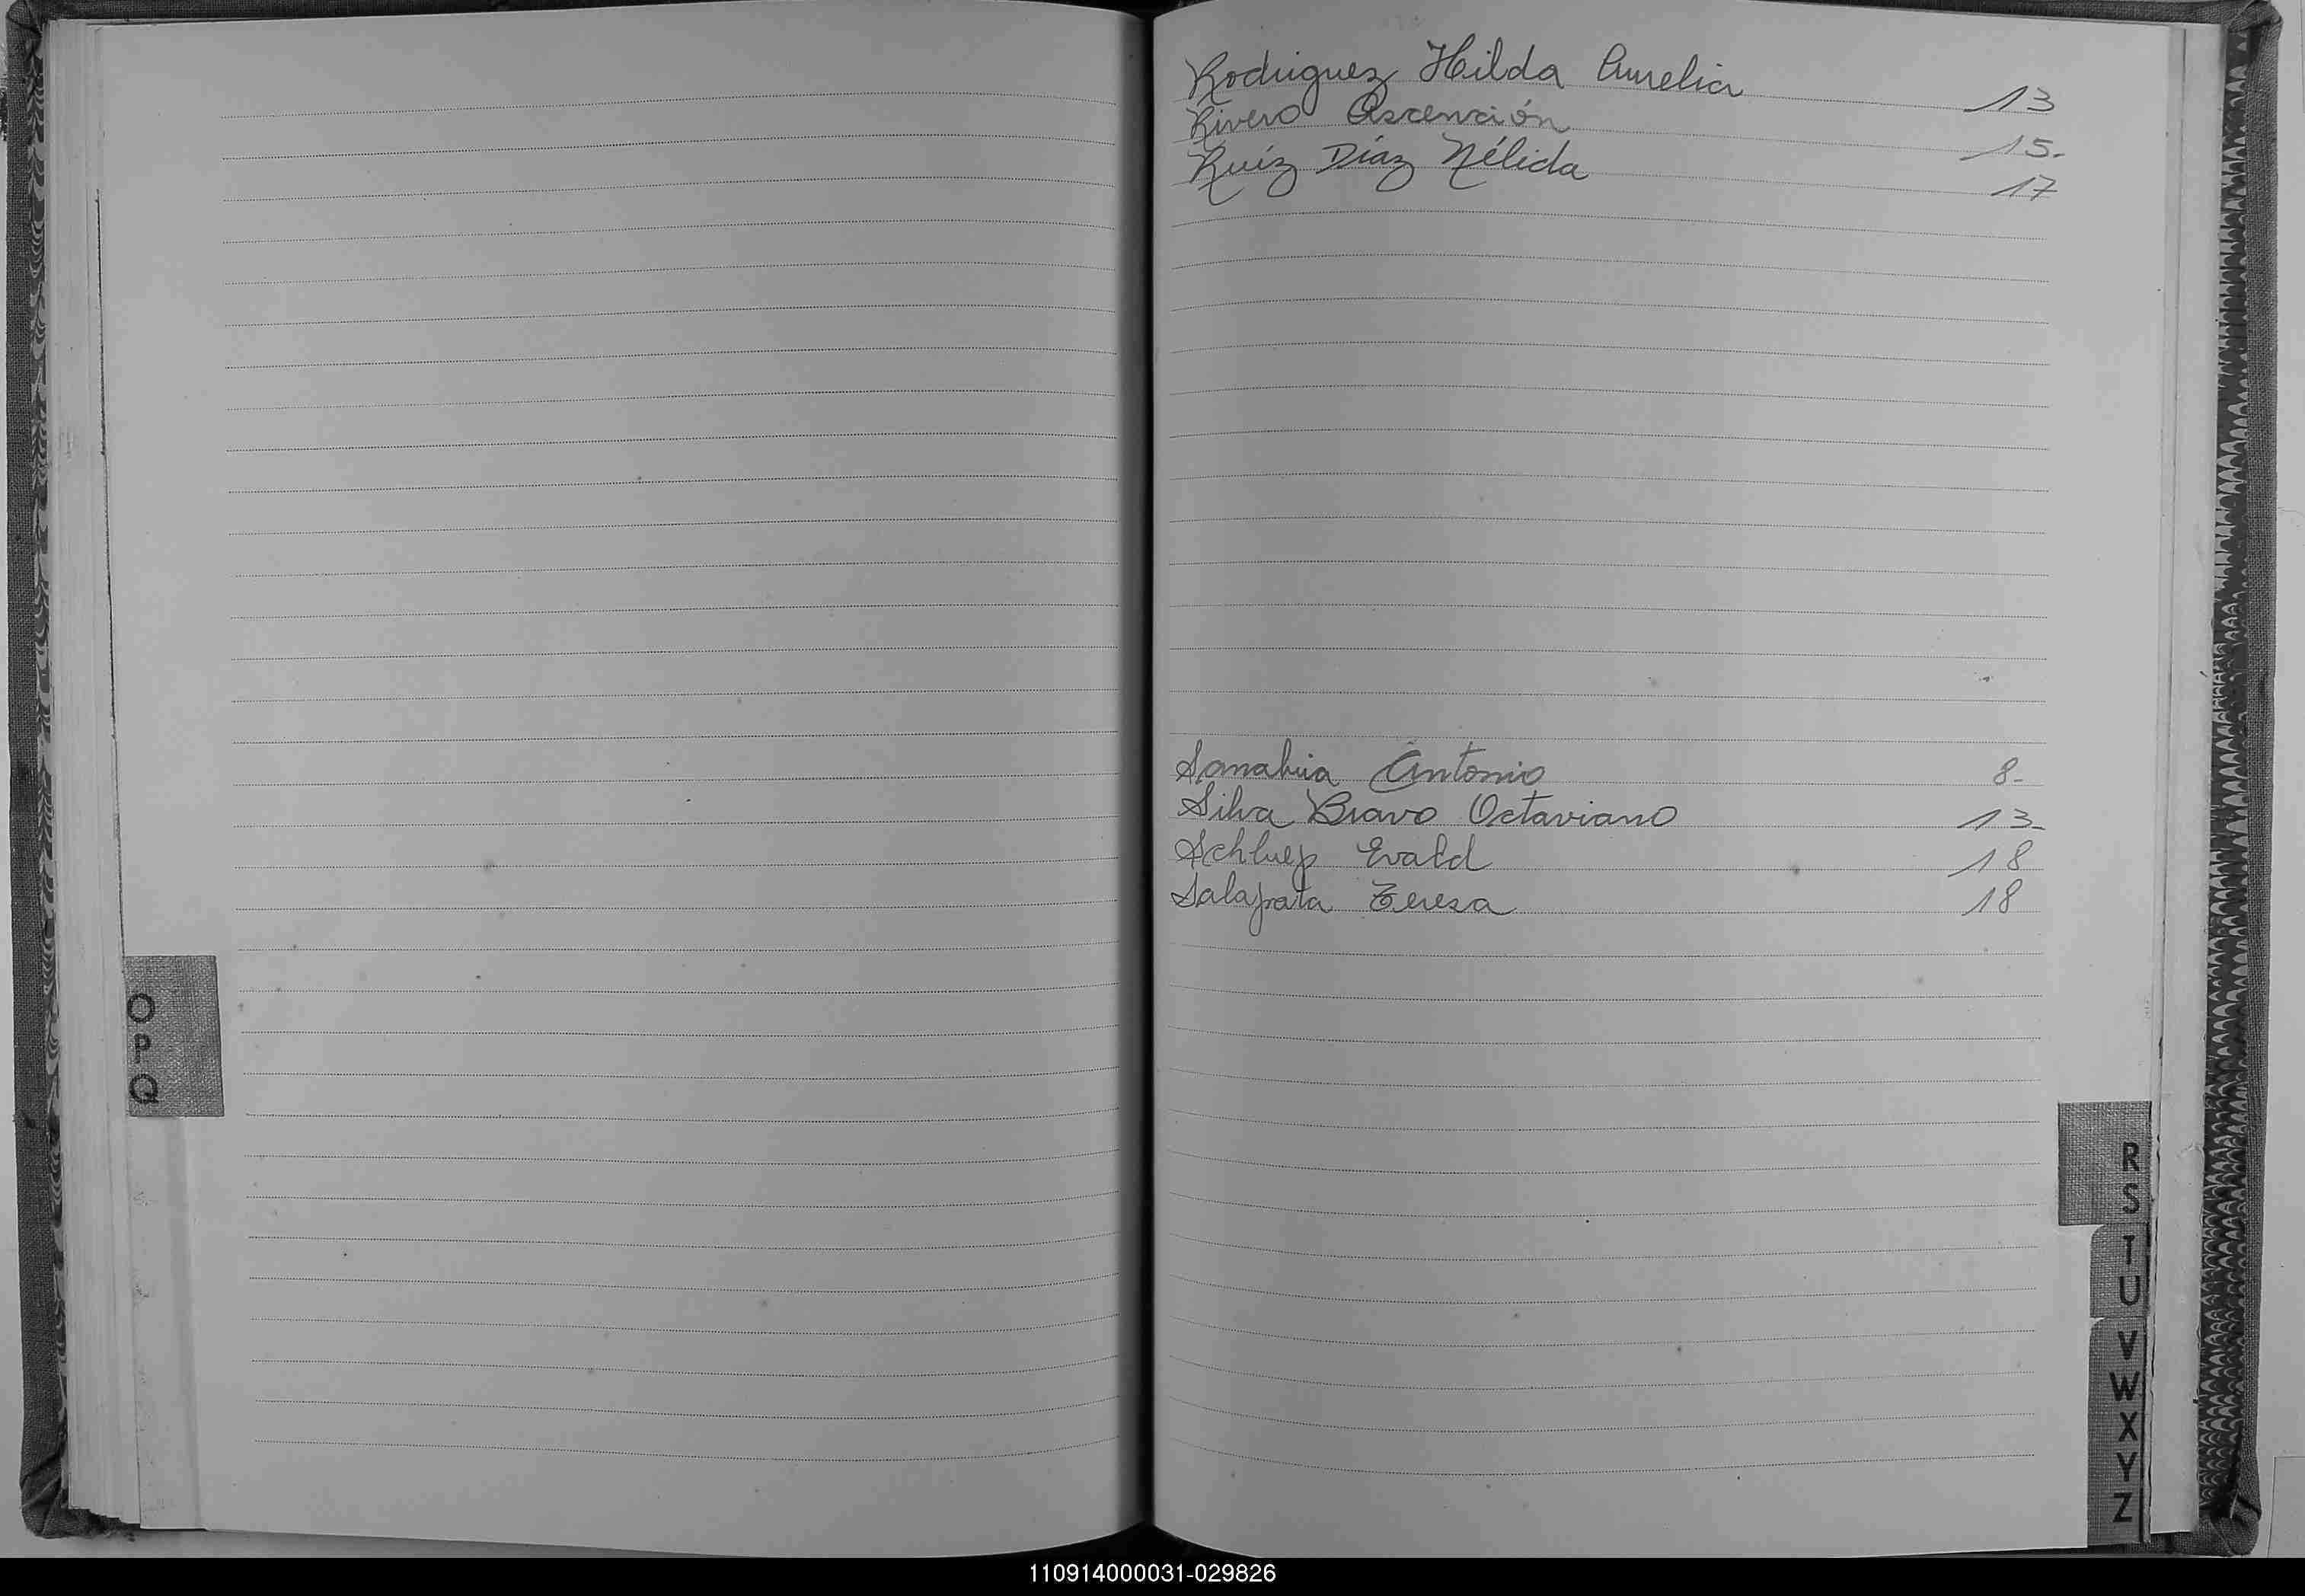 Rodriguez Hilda Aurelia 13
Rivero Ascención 15.
Ruíz Díaz Nélida 17
Sanabria Antonio 8-
Silva Bravo Octaviano 13-
Schluep Evald 18
Salapata Teresa 18
O
P
Q
R
S
T
U
V
W
X
Y
Z
110914000031-029826